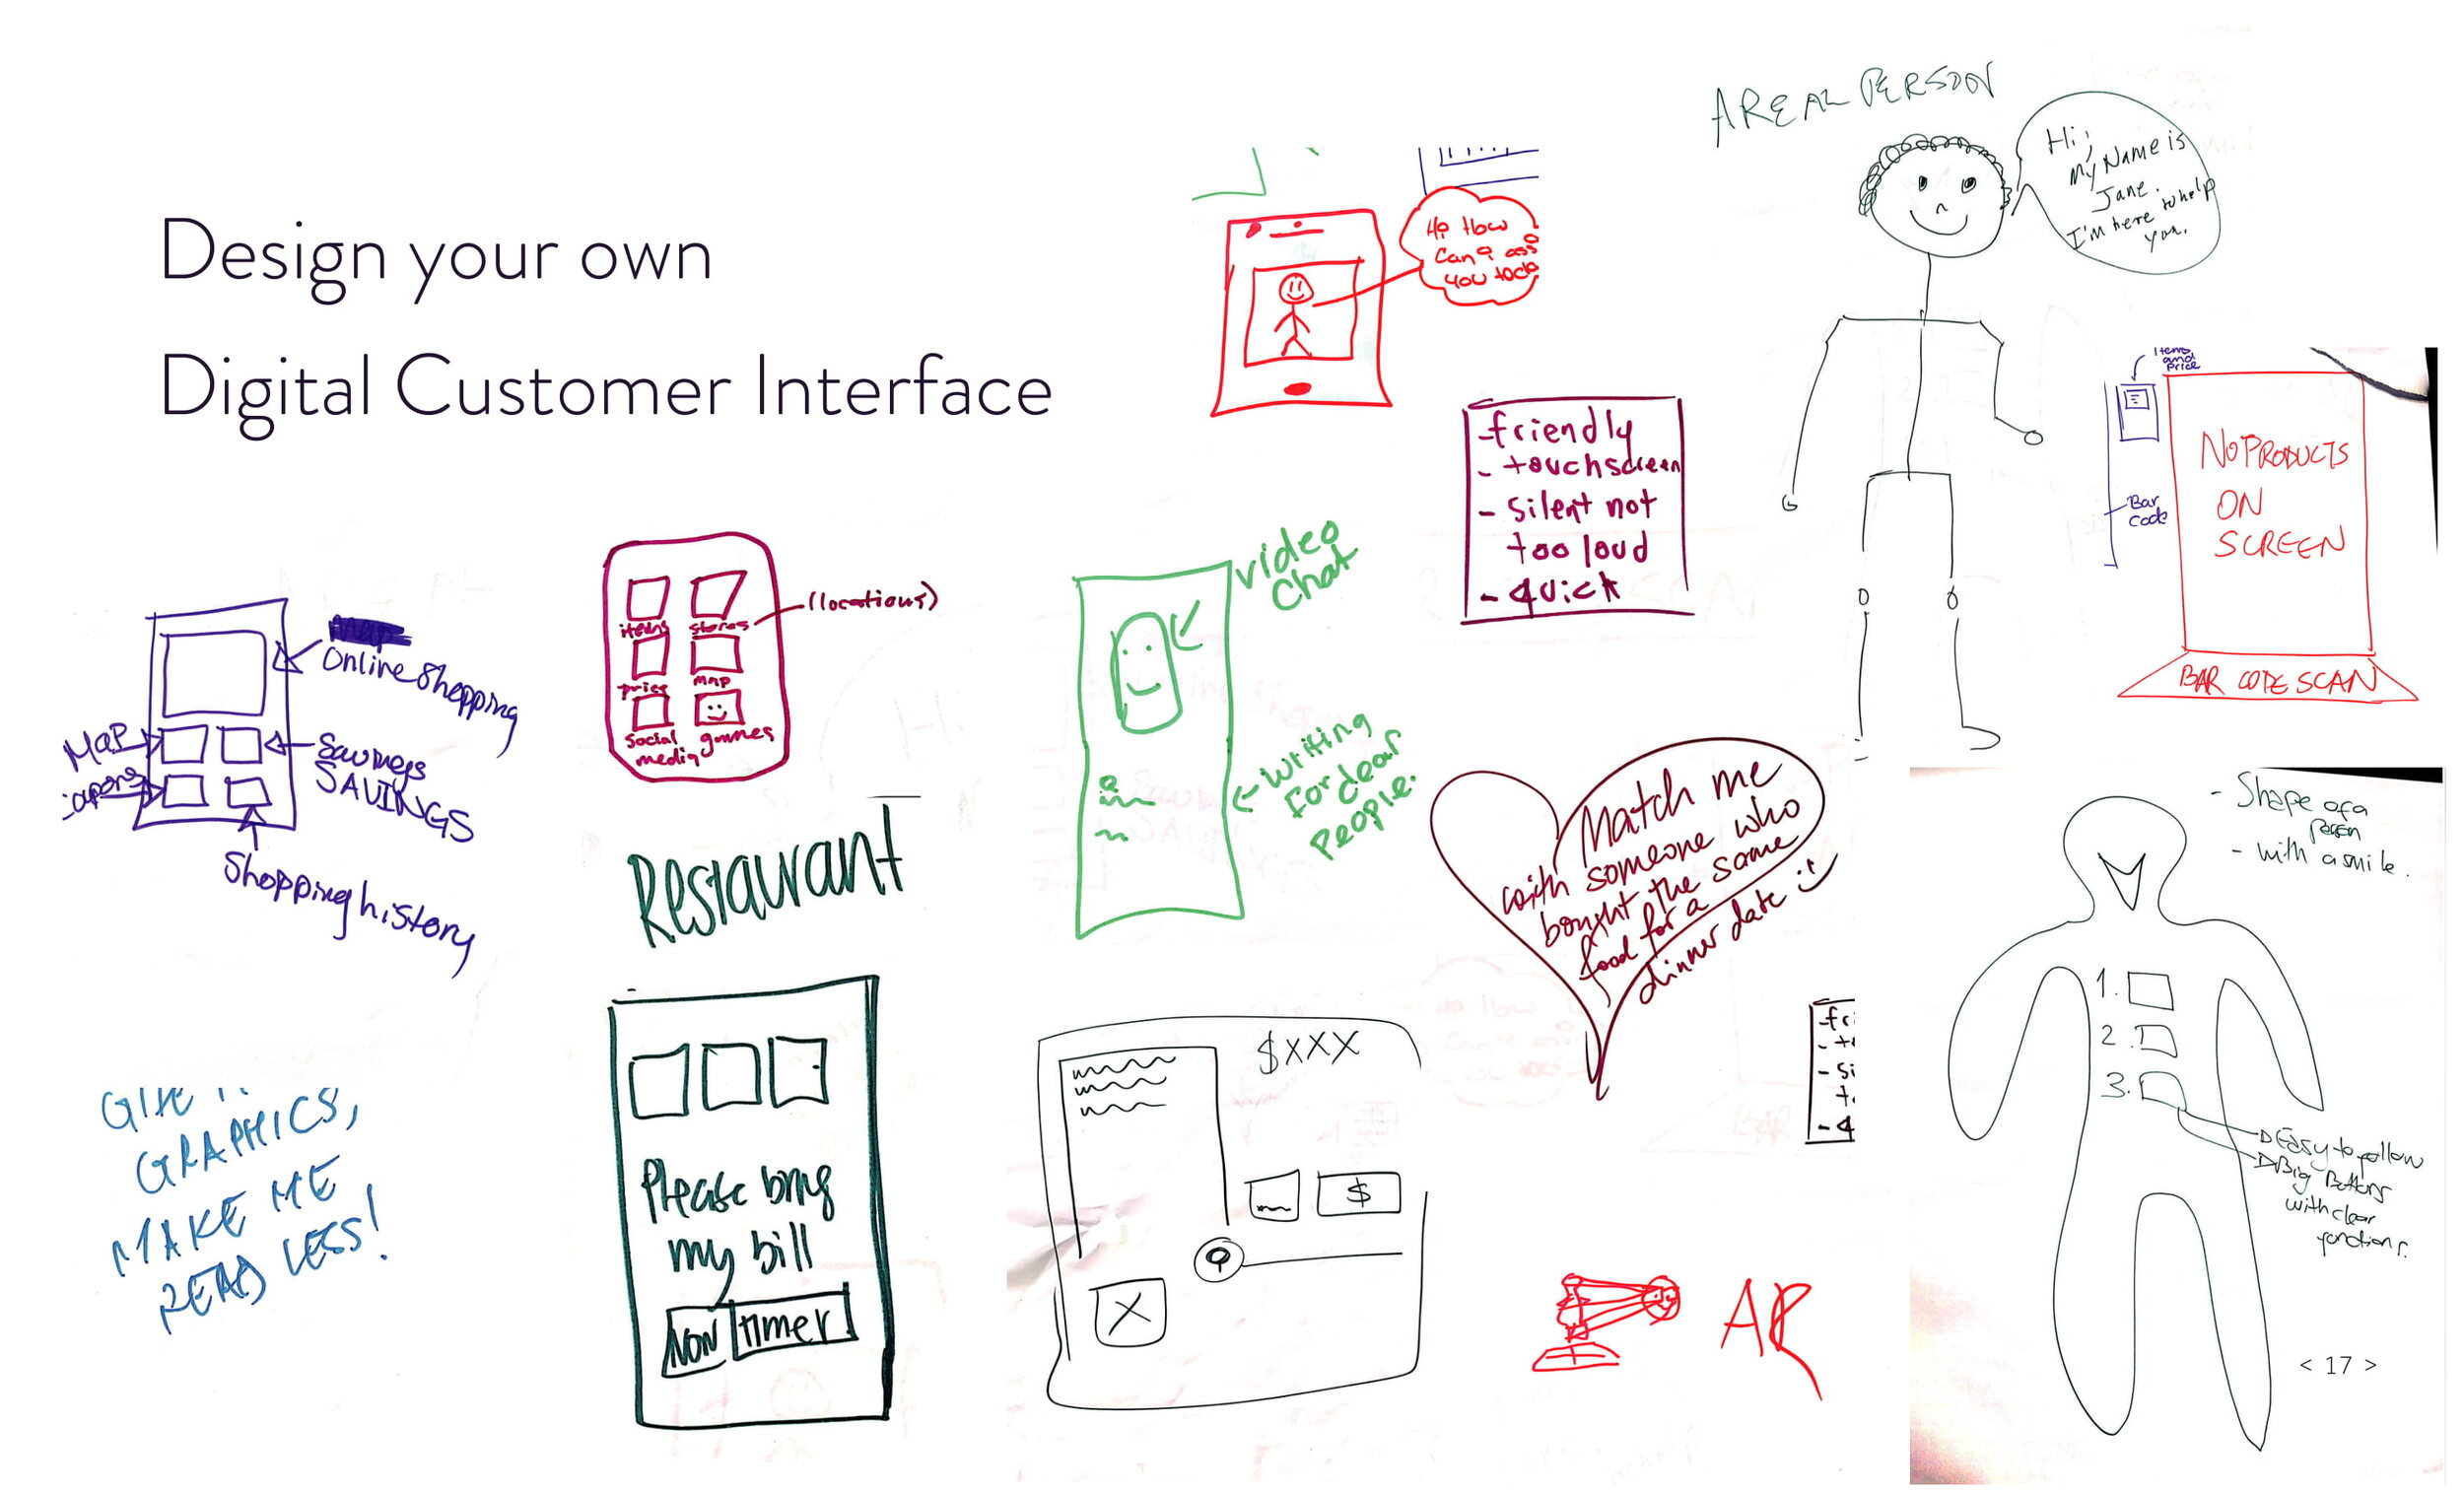 Design your own
Digital Customer Interface
A REAL PERSON
Hi,
My Name is
Jane.
I'm here to help
you.
How
Can
you
- friendly
- touchscreen
- silent not
too loud
- quick
Items
and
Price
Bar
code
NO PRODUCTS
ON
SCREEN
BAR CODE SCAN
Online Shopping
Map
SAVINGS
Shopping history
items
stores
(locations)
price
map
social
media
games
video
chat
writing
For deaf
People.
Match me
with someone who
bought the same
food for a
dinner date :)
- Shape of a
person
- with a smile.
1.
2.
3.
Easy to follow
Big Buttons
with clear
functions.
Restaurant
Please bring
my bill
Now
timer
GRAPHICS,
MAKE ME
READ LESS!
$XXX
$
X
- fr
- t
- si
t
- q
AR
< 17 >